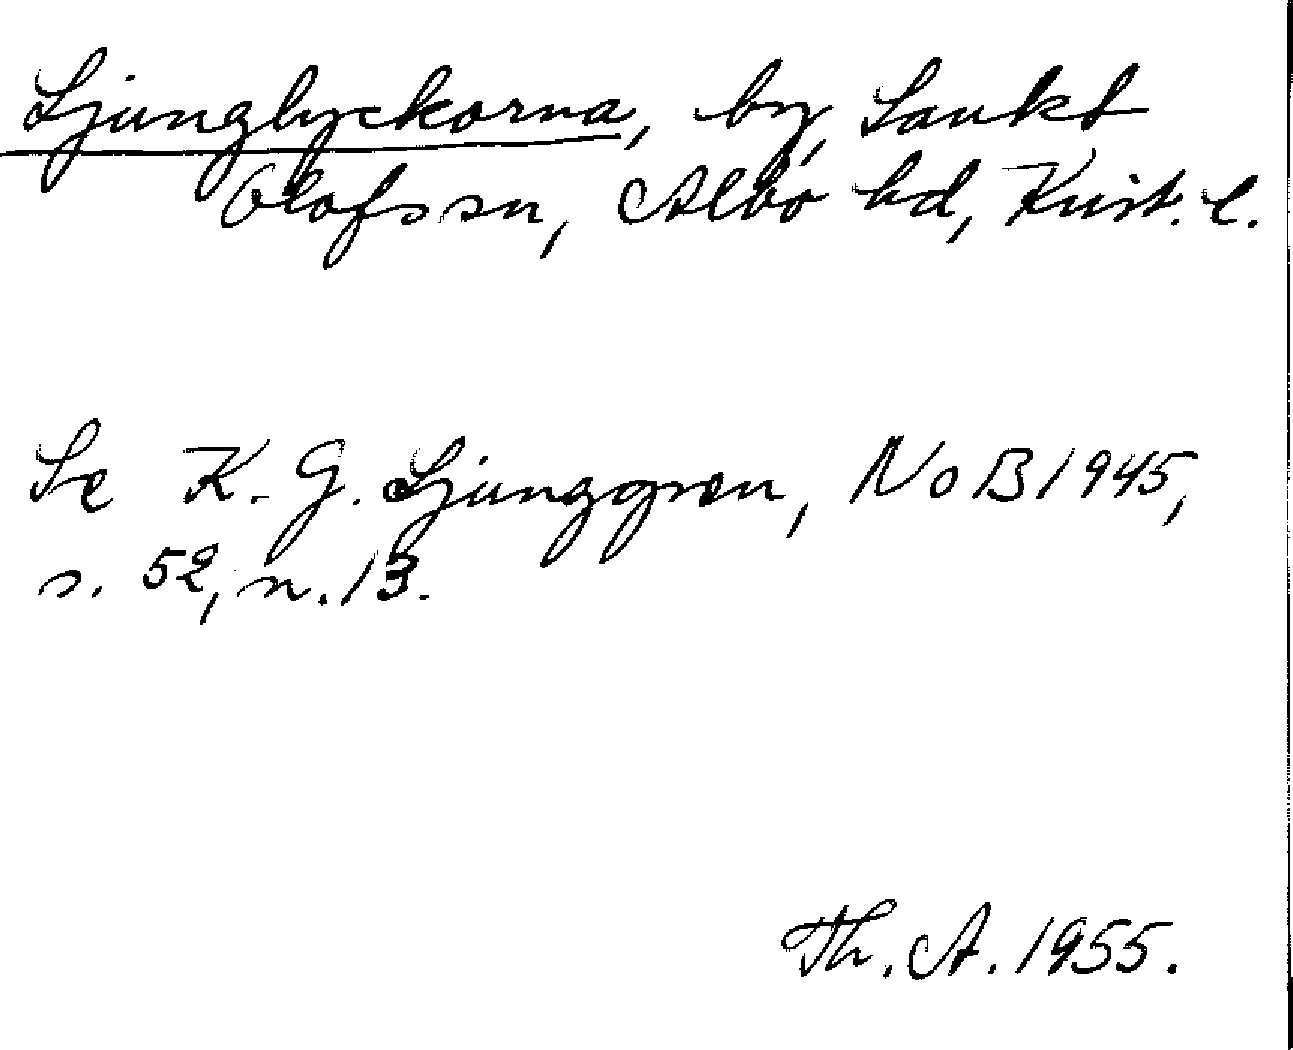 Ljunglyckorna, by, Sankt
Olofs sn, Albo hd, Krist. l.
Se K. G. Ljunggren, NoB 1945,
s. 52, n. 13.
Th. A. 1955.